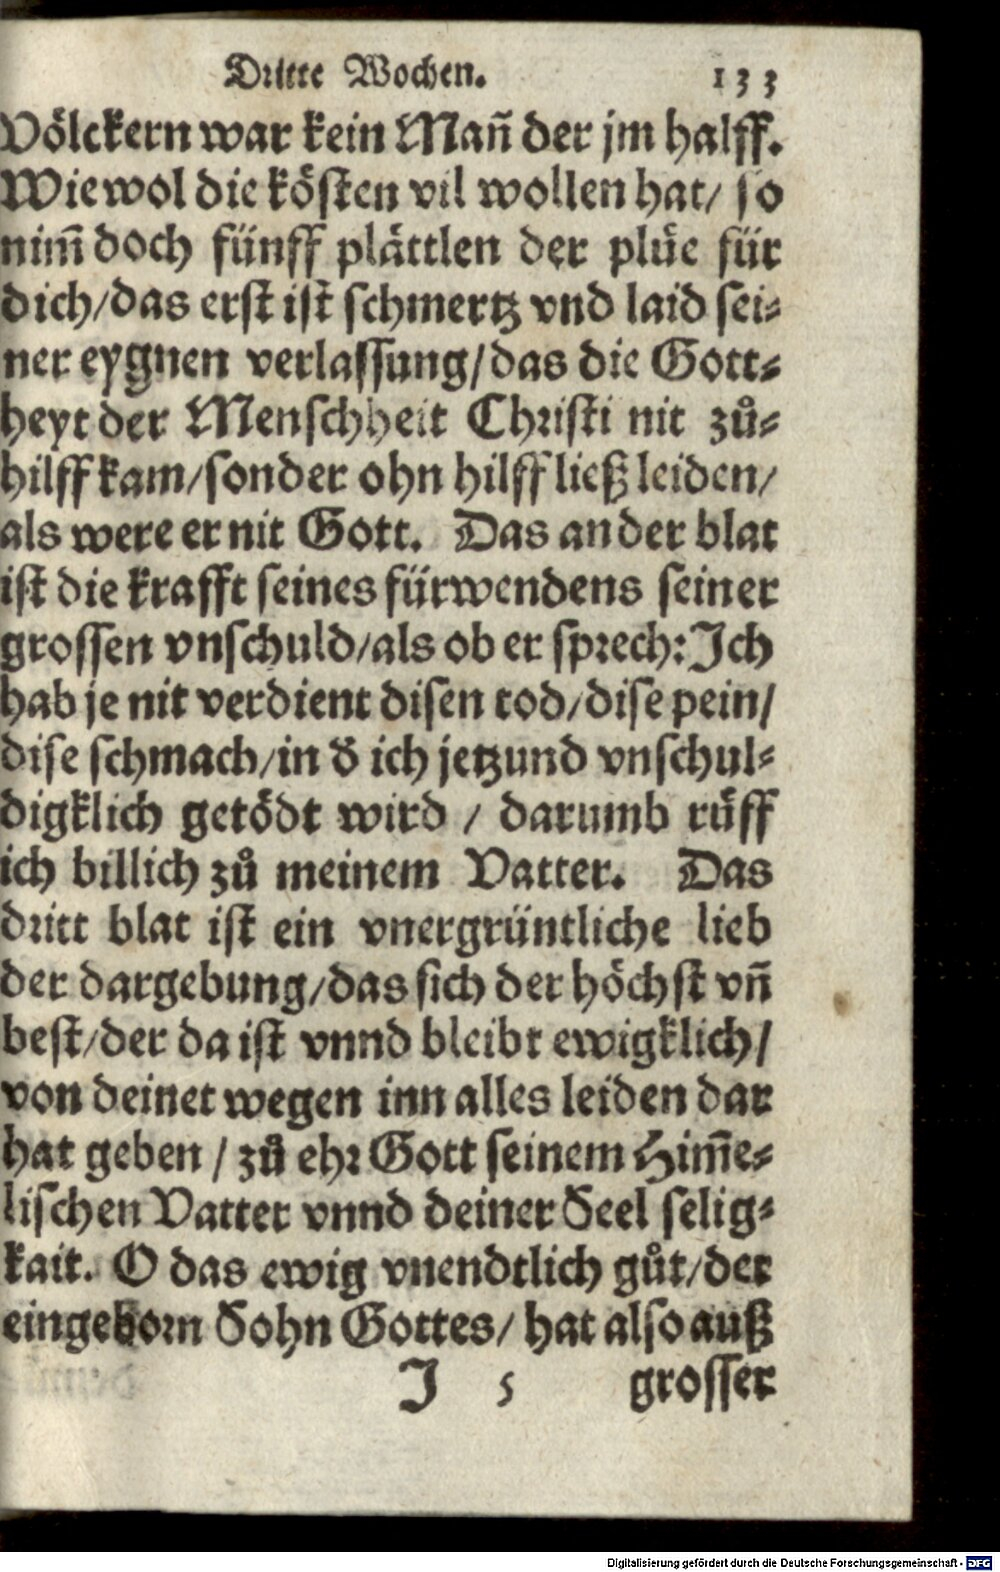 Dritte Wochen. 133
Völckern war kein Mañ der jm halff.
Wiewol die kösten vil wollen hat/ so
nim̃ doch fünff plättlen der plüe für
dich/das erst ist schmertz vnd laid sei-
ner eygnen verlassung/das die Gott-
heyt der Menschheit Christi nit zů-
hilff kam/sonder ohn hilff ließ leiden/
als were er nit Gott. Das ander blat
ist die krafft seines fürwendens seiner
grossen vnschuld/als ob er sprech: Ich
hab je nit verdient disen tod/dise pein/
dise schmach/in d̕ ich jetzund vnschul-
digklich getödt wird / darumb rüff
ich billich zů meinem Vatter. Das
dritt blat ist ein vnergrüntliche lieb
der dargebung/das sich der höchst vñ
best/der da ist vnnd bleibt ewigklich/
von deinet wegen inn alles leiden dar
hat geben / zů ehr Gott seinem Him̃e-
lischen Vatter vnnd deiner Seel selig-
kait. O das ewig vnendtlich gůt/der
eingeborn Sohn Gottes/ hat also auß
J 5 grosser
Digitalisierung gefördert durch die Deutsche Forschungsgemeinschaft - DFG